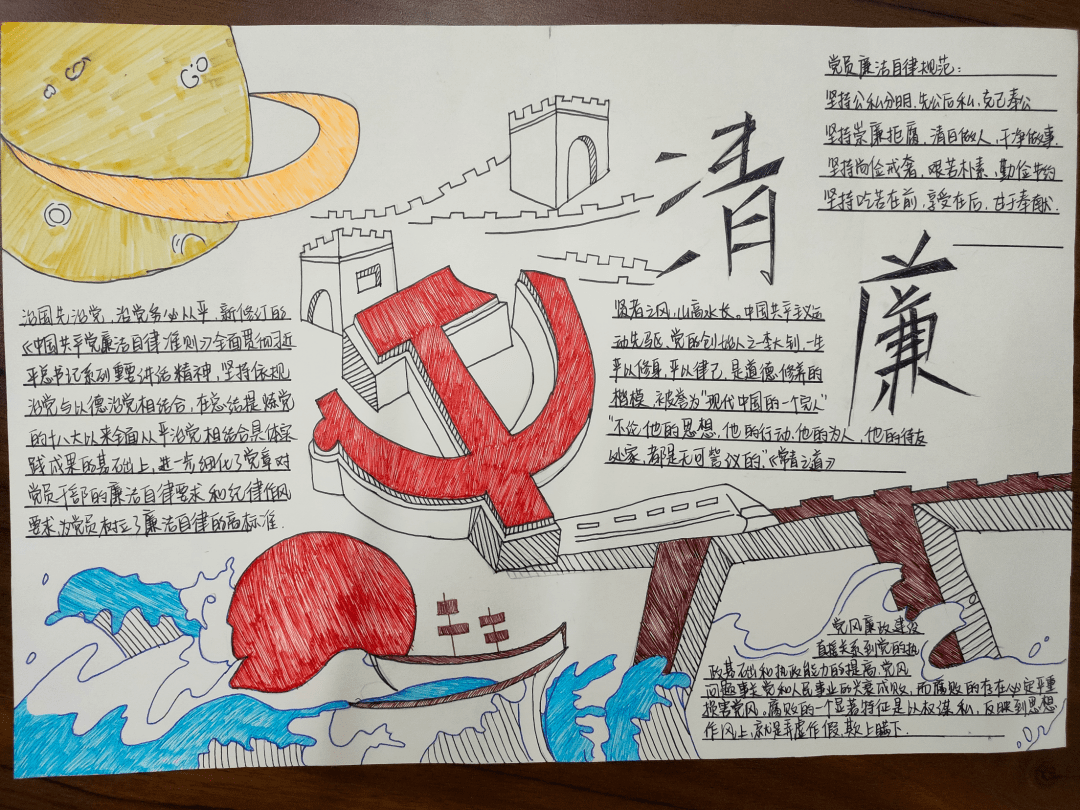 清
廉
党员廉洁自律规范：
坚持公私分明，先公后私，克己奉公
坚持崇廉拒腐，清白做人，干净做事
坚持尚俭戒奢，艰苦朴素，勤俭节约
坚持吃苦在前，享受在后，甘于奉献.
治国先治党，治党务必从严，新修订的
《中国共产党廉洁自律准则》全面贯彻近
平总书记系列重要讲话精神，坚持依规
治党与以德治党相结合，在总结提炼党
的十八大以来全面从严治党相结合具体实
践成果的基础上，进一步细化了党章对
党员干部的廉洁自律要求和纪律作风
要求，为党员树立了廉洁自律的高标准.
贤者之风，山高水长。中国共产主义运
动先驱，党的创始人之一李大钊，一生
严以修身，严以律己，是道德修养的
楷模，被誉为“现代中国的一个完人”
“不论他的思想，他的行动，他的为人，他的待友
处家，都是无可訾议的。”《常青之道》
党风廉政建设
直接关系到党的执
政基础和执政能力的提高，党风
问题事关党和人民事业的兴衰成败，而腐败的存在必定严重
损害党风。腐败的一个显著特征是以权谋私，反映到思想
作风上，就是弄虚作假，欺上瞒下.